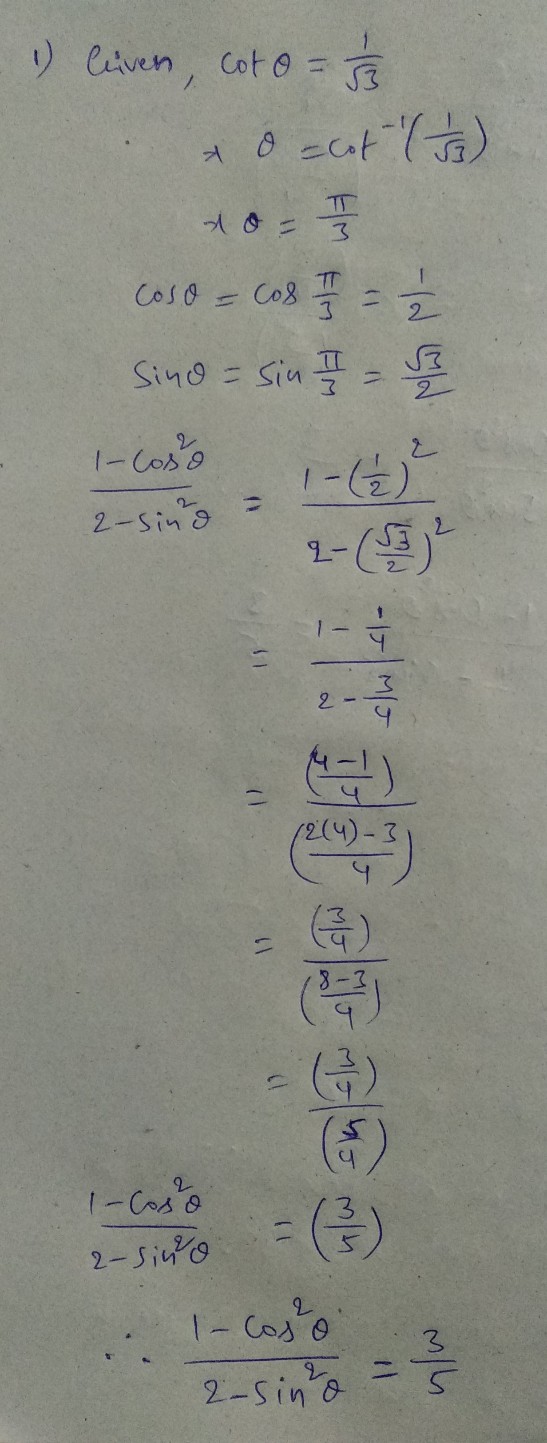 1) Given, cot θ = 1/√3
⇒ θ = cot⁻¹(1/√3)
⇒ θ = π/3
cosθ = cos π/3 = 1/2
Sinθ = Sin π/3 = √3/2
(1-Cos²θ)/(2-Sin²θ) = (1-(1/2)²)/(2-(√3/2)²)
= (1-1/4)/(2-3/4)
= ((4-1)/4)/((2(4)-3)/4)
= (3/4)/((8-3)/4)
= (3/4)/(5/4)
(1-Cos²θ)/(2-Sin²θ) = (3/5)
∴ (1-Cos²θ)/(2-Sin²θ) = 3/5